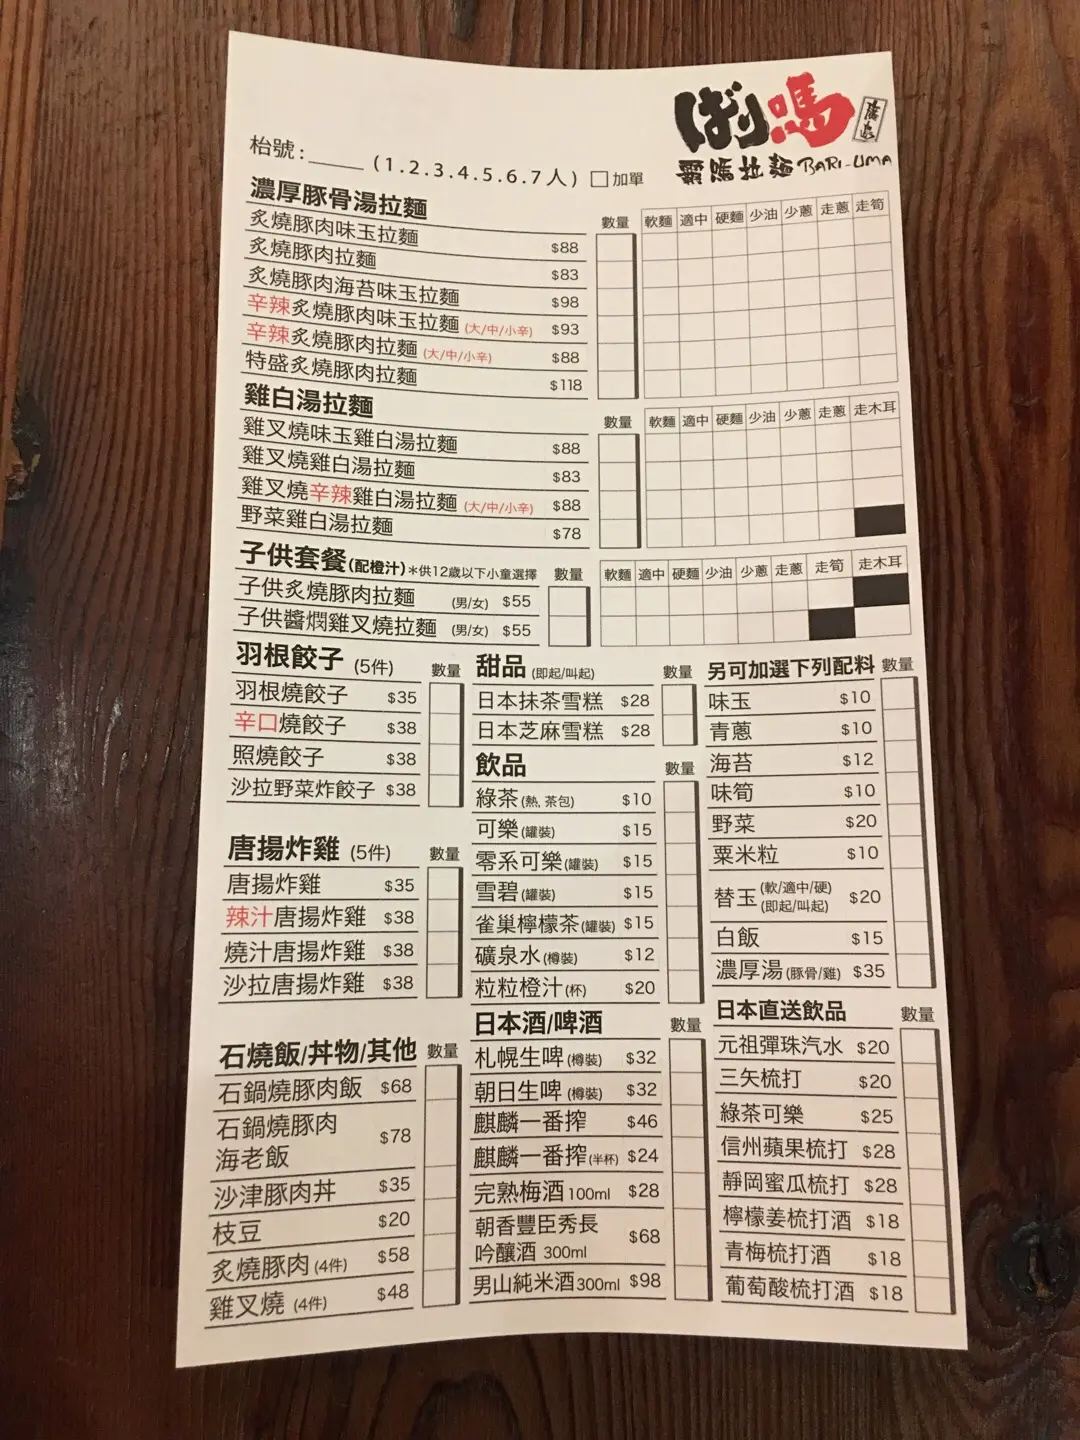 ばり嗎
霸嗎拉麵 BARI-UMA
枱號:_____ (1.2.3.4.5.6.7人) □加單
濃厚豚骨湯拉麵 數量 軟麵 適中 硬麵 少油 少蔥 走蔥 走筍
炙燒豚肉味玉拉麵 $88
炙燒豚肉拉麵 $83
炙燒豚肉海苔味玉拉麵 $98
辛辣炙燒豚肉味玉拉麵 (大/中/小辛) $93
辛辣炙燒豚肉拉麵 (大/中/小辛) $88
特盛炙燒豚肉拉麵 $118
雞白湯拉麵 數量 軟麵 適中 硬麵 少油 少蔥 走蔥 走木耳
雞叉燒味玉雞白湯拉麵 $88
雞叉燒雞白湯拉麵 $83
雞叉燒辛辣雞白湯拉麵 (大/中/小辛) $88
野菜雞白湯拉麵 $78
子供套餐(配橙汁)*供12歲以下小童選擇 數量 軟麵 適中 硬麵 少油 少蔥 走蔥 走筍 走木耳
子供炙燒豚肉拉麵 (男/女) $55
子供醬燜雞叉燒拉麵 (男/女) $55
羽根餃子 (5件) 數量
羽根燒餃子 $35
辛口燒餃子 $38
照燒餃子 $38
沙拉野菜炸餃子 $38
唐揚炸雞 (5件) 數量
唐揚炸雞 $35
辣汁唐揚炸雞 $38
燒汁唐揚炸雞 $38
沙拉唐揚炸雞 $38
石燒飯/丼物/其他 數量
石鍋燒豚肉飯 $68
石鍋燒豚肉
海老飯 $78
沙津豚肉丼 $35
枝豆 $20
炙燒豚肉 (4件) $58
雞叉燒 (4件) $48
甜品 (即起/叫起) 數量
日本抹茶雪糕 $28
日本芝麻雪糕 $28
飲品 數量
綠茶 (熱, 茶包) $10
可樂 (罐裝) $15
零系可樂 (罐裝) $15
雪碧 (罐裝) $15
雀巢檸檬茶 (罐裝) $15
礦泉水 (樽裝) $12
粒粒橙汁 (杯) $20
日本酒/啤酒 數量
札幌生啤 (樽裝) $32
朝日生啤 (樽裝) $32
麒麟一番搾 $46
麒麟一番搾 (半杯) $24
完熟梅酒 100ml $28
朝香豐臣秀長
吟釀酒 300ml $68
男山純米酒 300ml $98
另可加選下列配料 數量
味玉 $10
青蔥 $10
海苔 $12
味筍 $10
野菜 $20
粟米粒 $10
替玉 (軟/適中/硬) (即起/叫起) $20
白飯 $15
濃厚湯 (豚骨/雞) $35
日本直送飲品 數量
元祖彈珠汽水 $20
三矢梳打 $20
綠茶可樂 $25
信州蘋果梳打 $28
靜岡蜜瓜梳打 $28
檸檬姜梳打酒 $18
青梅梳打酒 $18
葡萄酸梳打酒 $18